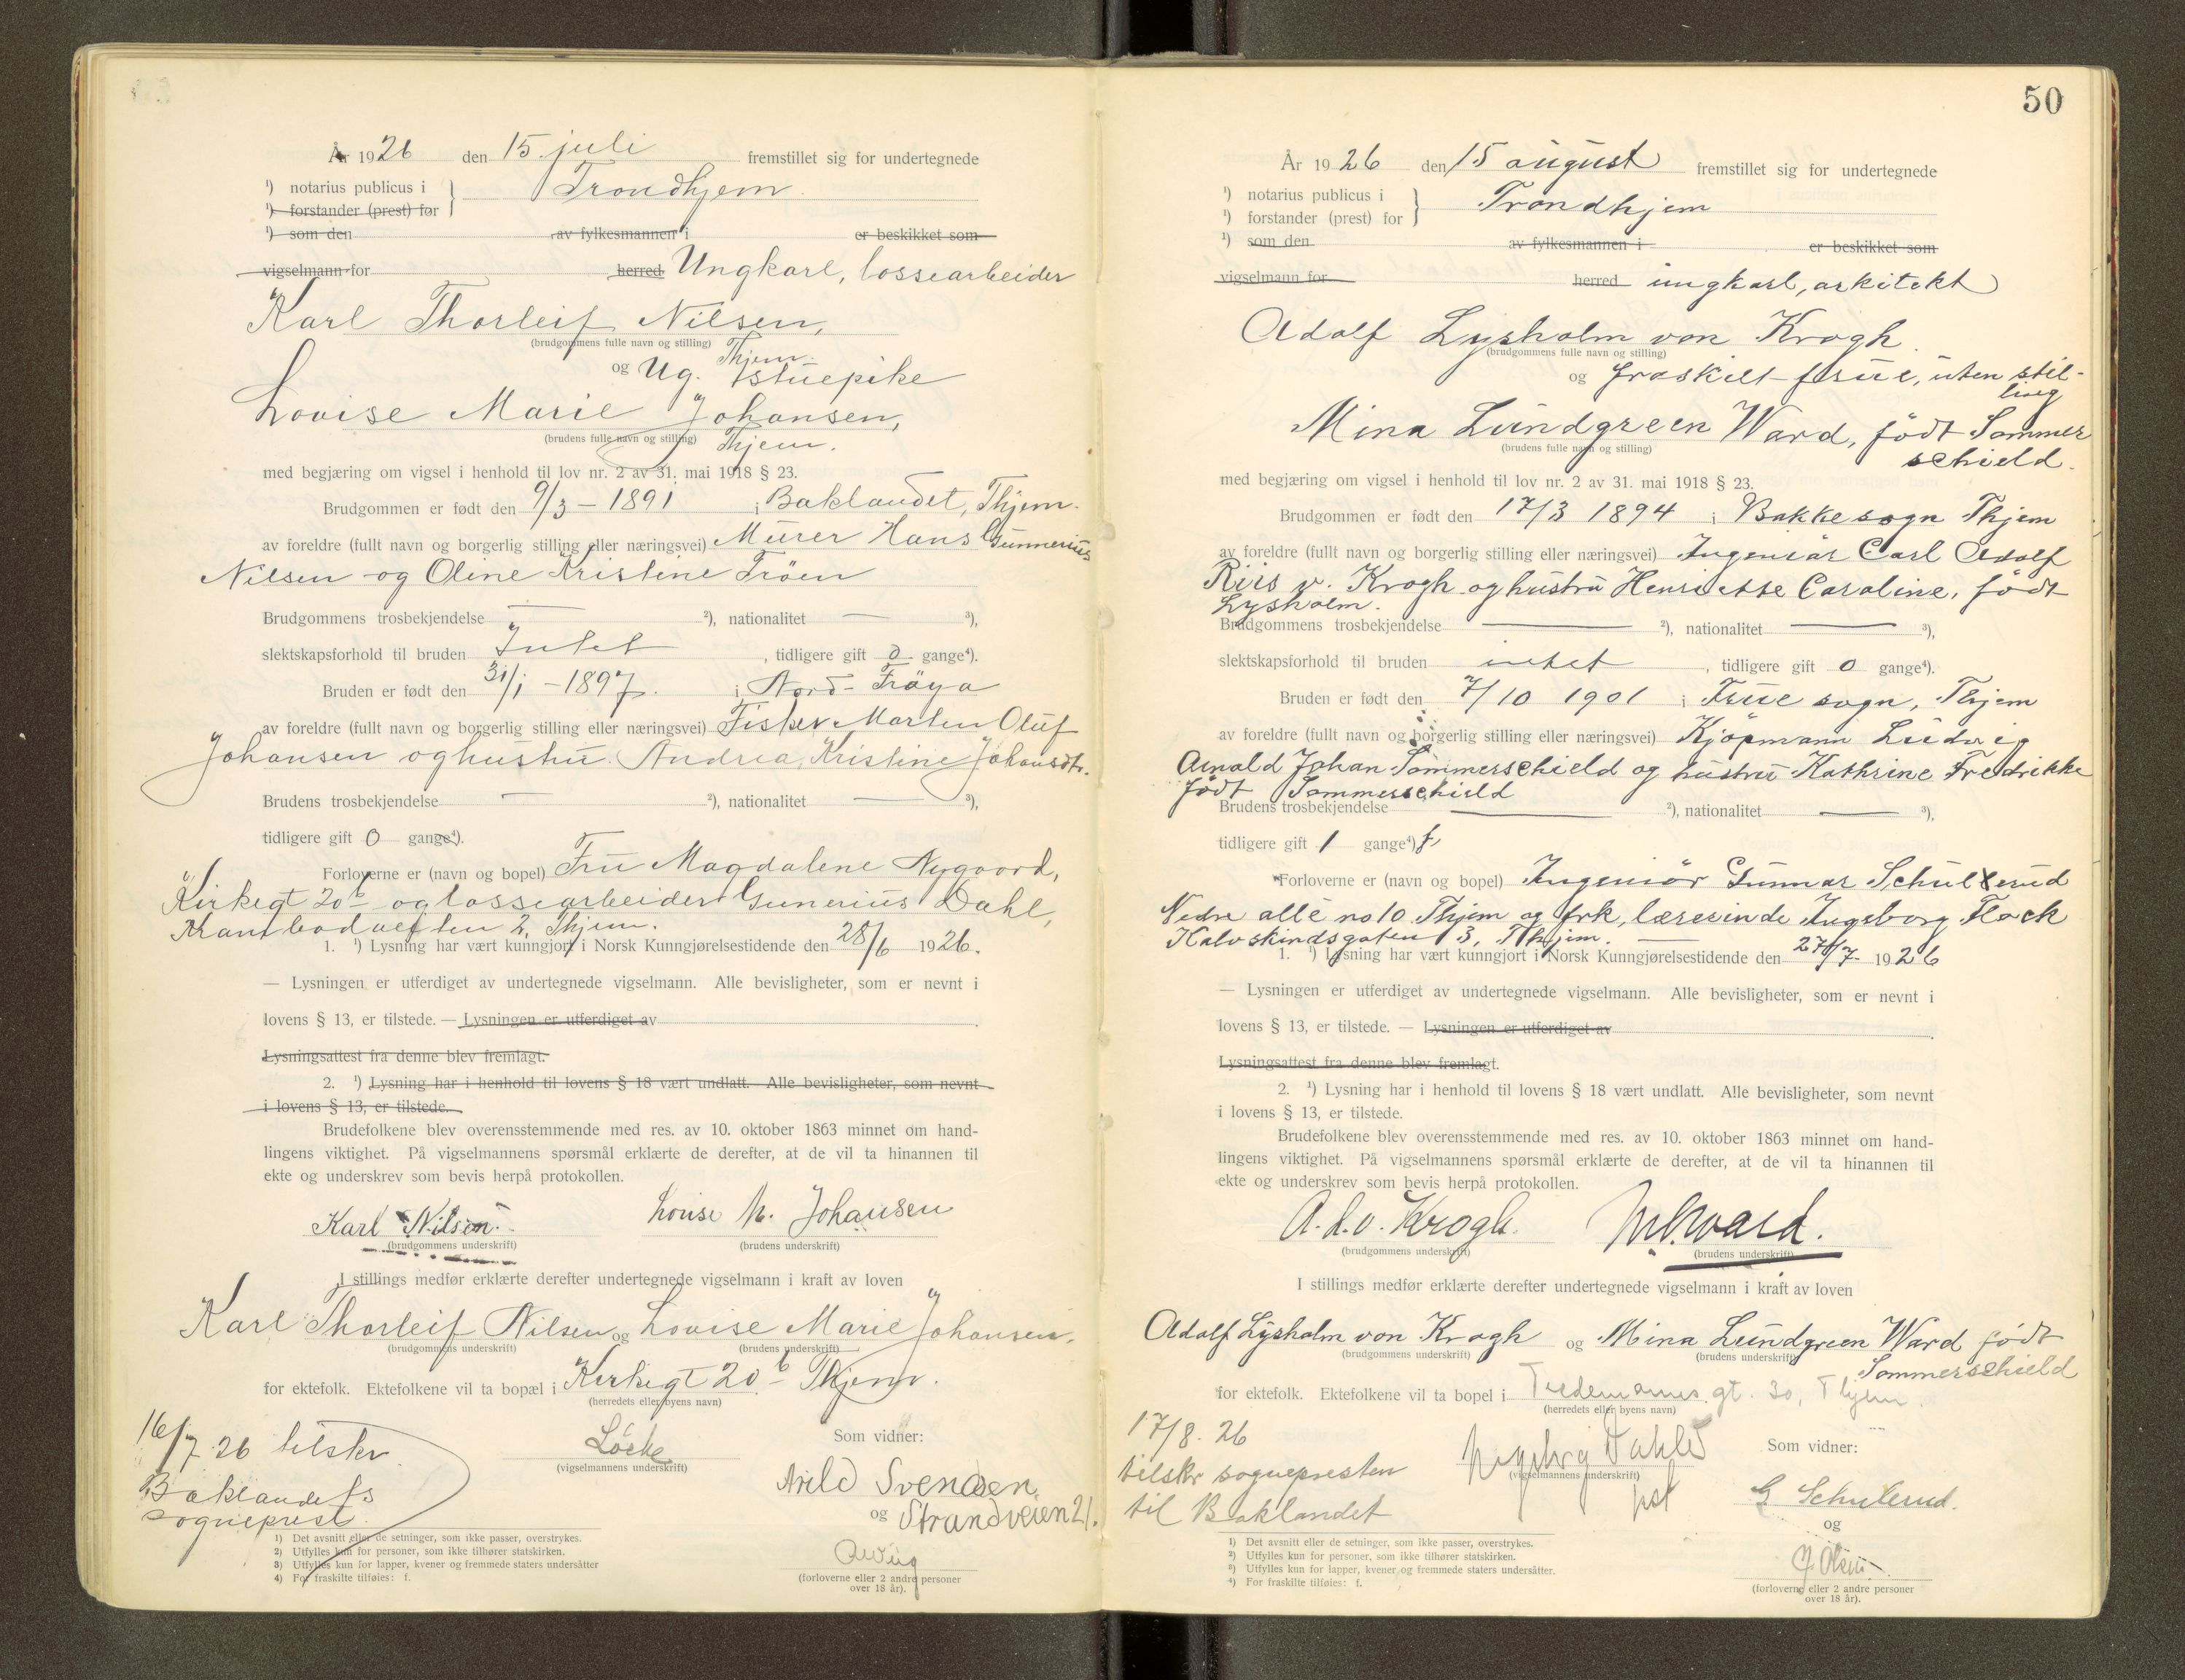 År 1926 den 15. juli fremstillet sig for undertegnede
¹) notarius publicus i
¹) forstander (prest) for } Trondhjem
¹) som den av fylkesmannen i er beskikket som
vigselmann for herred Ungkarl, lossearbeider
Karl Thorleif Nilsen,
(brudgommens fulle navn og stilling) Thjem.
og Ug. stuepike
Lovise Marie Johansen,
(brudens fulle navn og stilling) Thjem.
med begjæring om vigsel i henhold til lov nr. 2 av 31. mai 1918 § 23.
Brudgommen er født den 9/3 – 1891 i Baklandet, Thjem.
av foreldre (fullt navn og borgerlig stilling eller næringsvei) Murer Hans Gunnerius
Nilsen og Oline Kristine Tröen
Brudgommens trosbekjendelse — ²), nationalitet — ³),
slektskapsforhold til bruden Intet, tidligere gift 0 gange⁴).
Bruden er født den 31/1 – 1897. i Nord-Fröya
av foreldre (fullt navn og borgerlig stilling eller næringsvei) Fisker Morten Oluf
Johansen og hustru Andrea Kristine Johansdtr.
Brudens trosbekjendelse — ²), nationalitet — ³),
tidligere gift 0 gange⁴).
Forloverne er (navn og bopel) Fru Magdalene Nygaard,
Kirkegt 20b og lossearbeider Gunerius Dahl,
Krambodveiten 2, Thjem.
1. ¹) Lysning har vært kunngjort i Norsk Kunngjørelsestidende den 28/6 1926.
— Lysningen er utferdiget av undertegnede vigselmann. Alle bevisligheter, som er nevnt i
lovens § 13, er tilstede. — Lysningen er utferdiget av
Lysningsattest fra denne blev fremlagt.
2. ¹) Lysning har i henhold til lovens § 18 vært undlatt. Alle bevisligheter, som nevnt
i lovens § 13, er tilstede.
Brudefolkene blev overensstemmende med res. av 10. oktober 1863 minnet om hand-
lingens viktighet. På vigselmannens spørsmål erklærte de derefter, at de vil ta hinannen til
ekte og underskrev som bevis herpå protokollen.
Karl Nilsen. Louise M. Johansen
(brudgommens underskrift) (brudens underskrift)
I stillings medfør erklærte derefter undertegnede vigselmann i kraft av loven
Karl Thorleif Nilsen og Lovise Marie Johansen.
(brudgommens underskrift) (brudens underskrift)
for ektefolk. Ektefolkene vil ta bopæl i Kirkegt 20b Thjem.
(herredets eller byens navn)
16/7 26 tilskr.
Baklandets
sogneprest.
Löcke
(vigselmannens underskrift)
Som vidner:
Arild Svendsen
og Strandveien 21.
(forloverne eller 2 andre personer
over 18 år).
1) Det avsnitt eller de setninger, som ikke passer, overstrykes.
2) Utfylles kun for personer, som ikke tilhører statskirken.
3) Utfylles kun for lapper, kvener og fremmede staters undersåtter
4) For fraskilte tilføies: f.
50
År 1926 den 15 august fremstillet sig for undertegnede
¹) notarius publicus i
¹) forstander (prest) for } Trondhjem
¹) som den av fylkesmannen i er beskikket som
vigselmann for herred ungkarl, arkitekt
Adolf Lysholm von Krogh
(brudgommens fulle navn og stilling)
og fraskilt frue, uten stil-
ling
Mina Lundgreen Ward, født Sommer
schield.
(brudens fulle navn og stilling)
med begjæring om vigsel i henhold til lov nr. 2 av 31. mai 1918 § 23.
Brudgommen er født den 17/3 1894 i Bakke sogn Thjem
av foreldre (fullt navn og borgerlig stilling eller næringsvei) Ingeniør Carl Adolf
Riis v. Krogh og hustru Henriette Caroline, født
Lysholm.
Brudgommens trosbekjendelse — ²), nationalitet — ³),
slektskapsforhold til bruden intet, tidligere gift 0 gange⁴).
Bruden er født den 7/10 1901 i Frue sogn, Thjem
av foreldre (fullt navn og borgerlig stilling eller næringsvei) Kjöpmann Ludvig
Arnold Johan Sommerschield og hustru Kathrine Fredrikke
født Sommerschield
Brudens trosbekjendelse — ²), nationalitet — ³),
tidligere gift 1 gange⁴) f,
Forloverne er (navn og bopel) Ingeniör Gunnar Schulerud
Nedre allé no 10. Thjem og frk, lærerinde Ingeborg Flock
Kalvskindsgaten 3, Thjem.
1. ¹) Lysning har vært kunngjort i Norsk Kunngjørelsestidende den 27/7 1926
— Lysningen er utferdiget av undertegnede vigselmann. Alle bevisligheter, som er nevnt i
lovens § 13, er tilstede. — Lysningen er utferdiget av
Lysningsattest fra denne blev fremlagt.
2. ¹) Lysning har i henhold til lovens § 18 vært undlatt. Alle bevisligheter, som nevnt
i lovens § 13, er tilstede.
Brudefolkene blev overensstemmende med res. av 10. oktober 1863 minnet om hand-
lingens viktighet. På vigselmannens spørsmål erklærte de derefter, at de vil ta hinannen til
ekte og underskrev som bevis herpå protokollen.
A. L. v. Krogh. M. L. Ward.
(brudgommens underskrift) (brudens underskrift)
I stillings medfør erklærte derefter undertegnede vigselmann i kraft av loven
Adolf Lysholm von Krogh og Mina Lundgreen Ward født
Sommerschield
(brudgommens underskrift) (brudens underskrift)
for ektefolk. Ektefolkene vil ta bopel i Tidemanns gt. 30, Thjem.
(herredets eller byens navn)
17/8. 26
tilskr sognepresten
til Baklandet
Ingeborg Dahle
(vigselmannens underskrift)
pst
Som vidner:
G Schulerud.
og
J. Olsen.
(forloverne eller 2 andre personer
over 18 år).
1) Det avsnitt eller de setninger, som ikke passer, overstrykes.
2) Utfylles kun for personer, som ikke tilhører statskirken.
3) Utfylles kun for lapper, kvener og fremmede staters undersåtter.
4) For fraskilte tilføies: f.